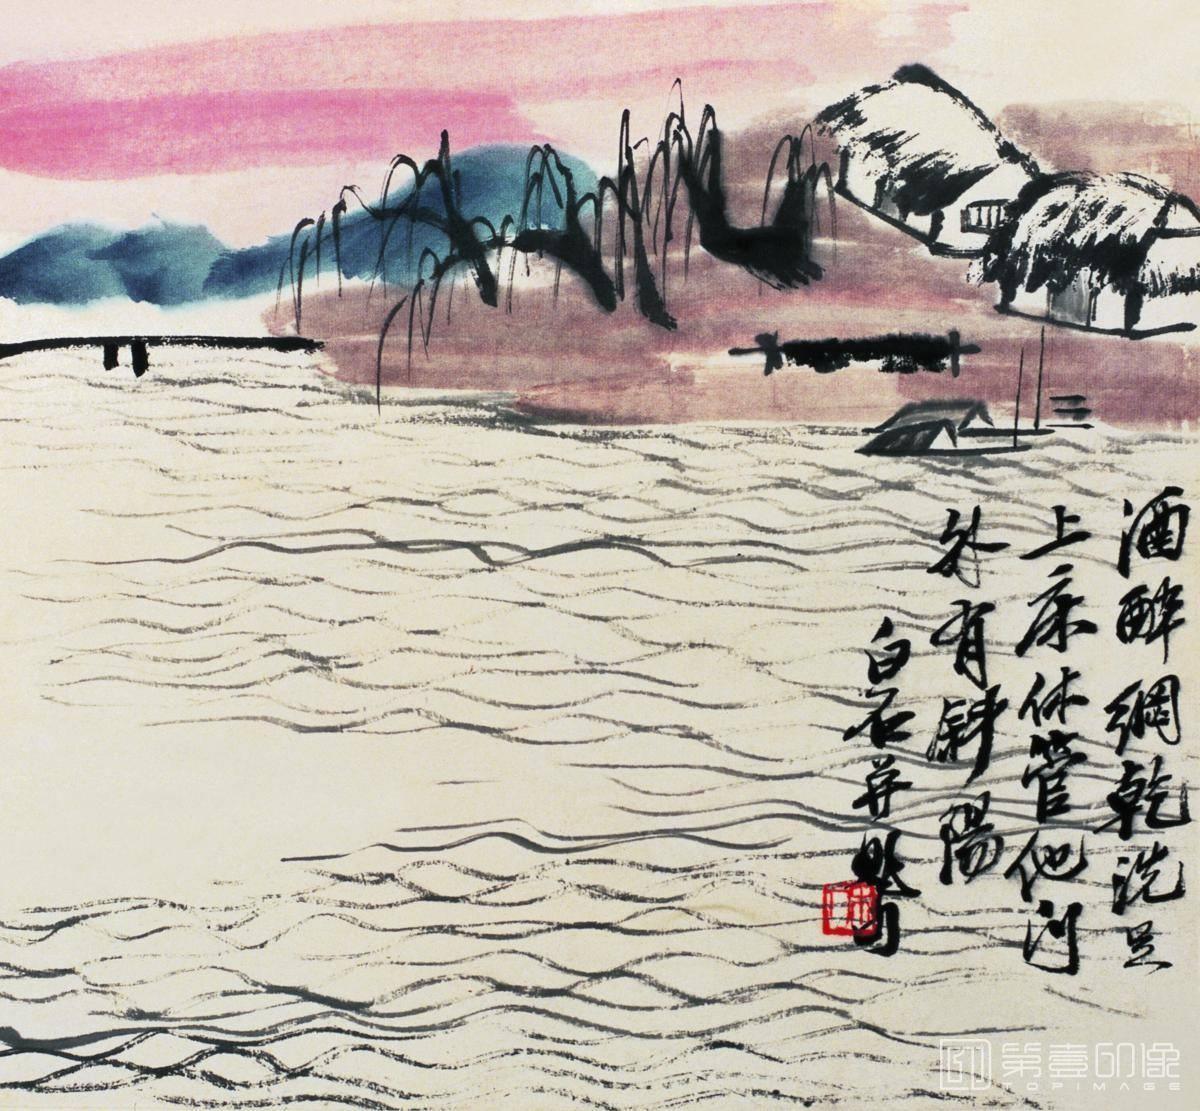 酒醉網乾洗足
上床休管他門
外有斜陽
白石并題句
第壹印像
TOPIMAGE